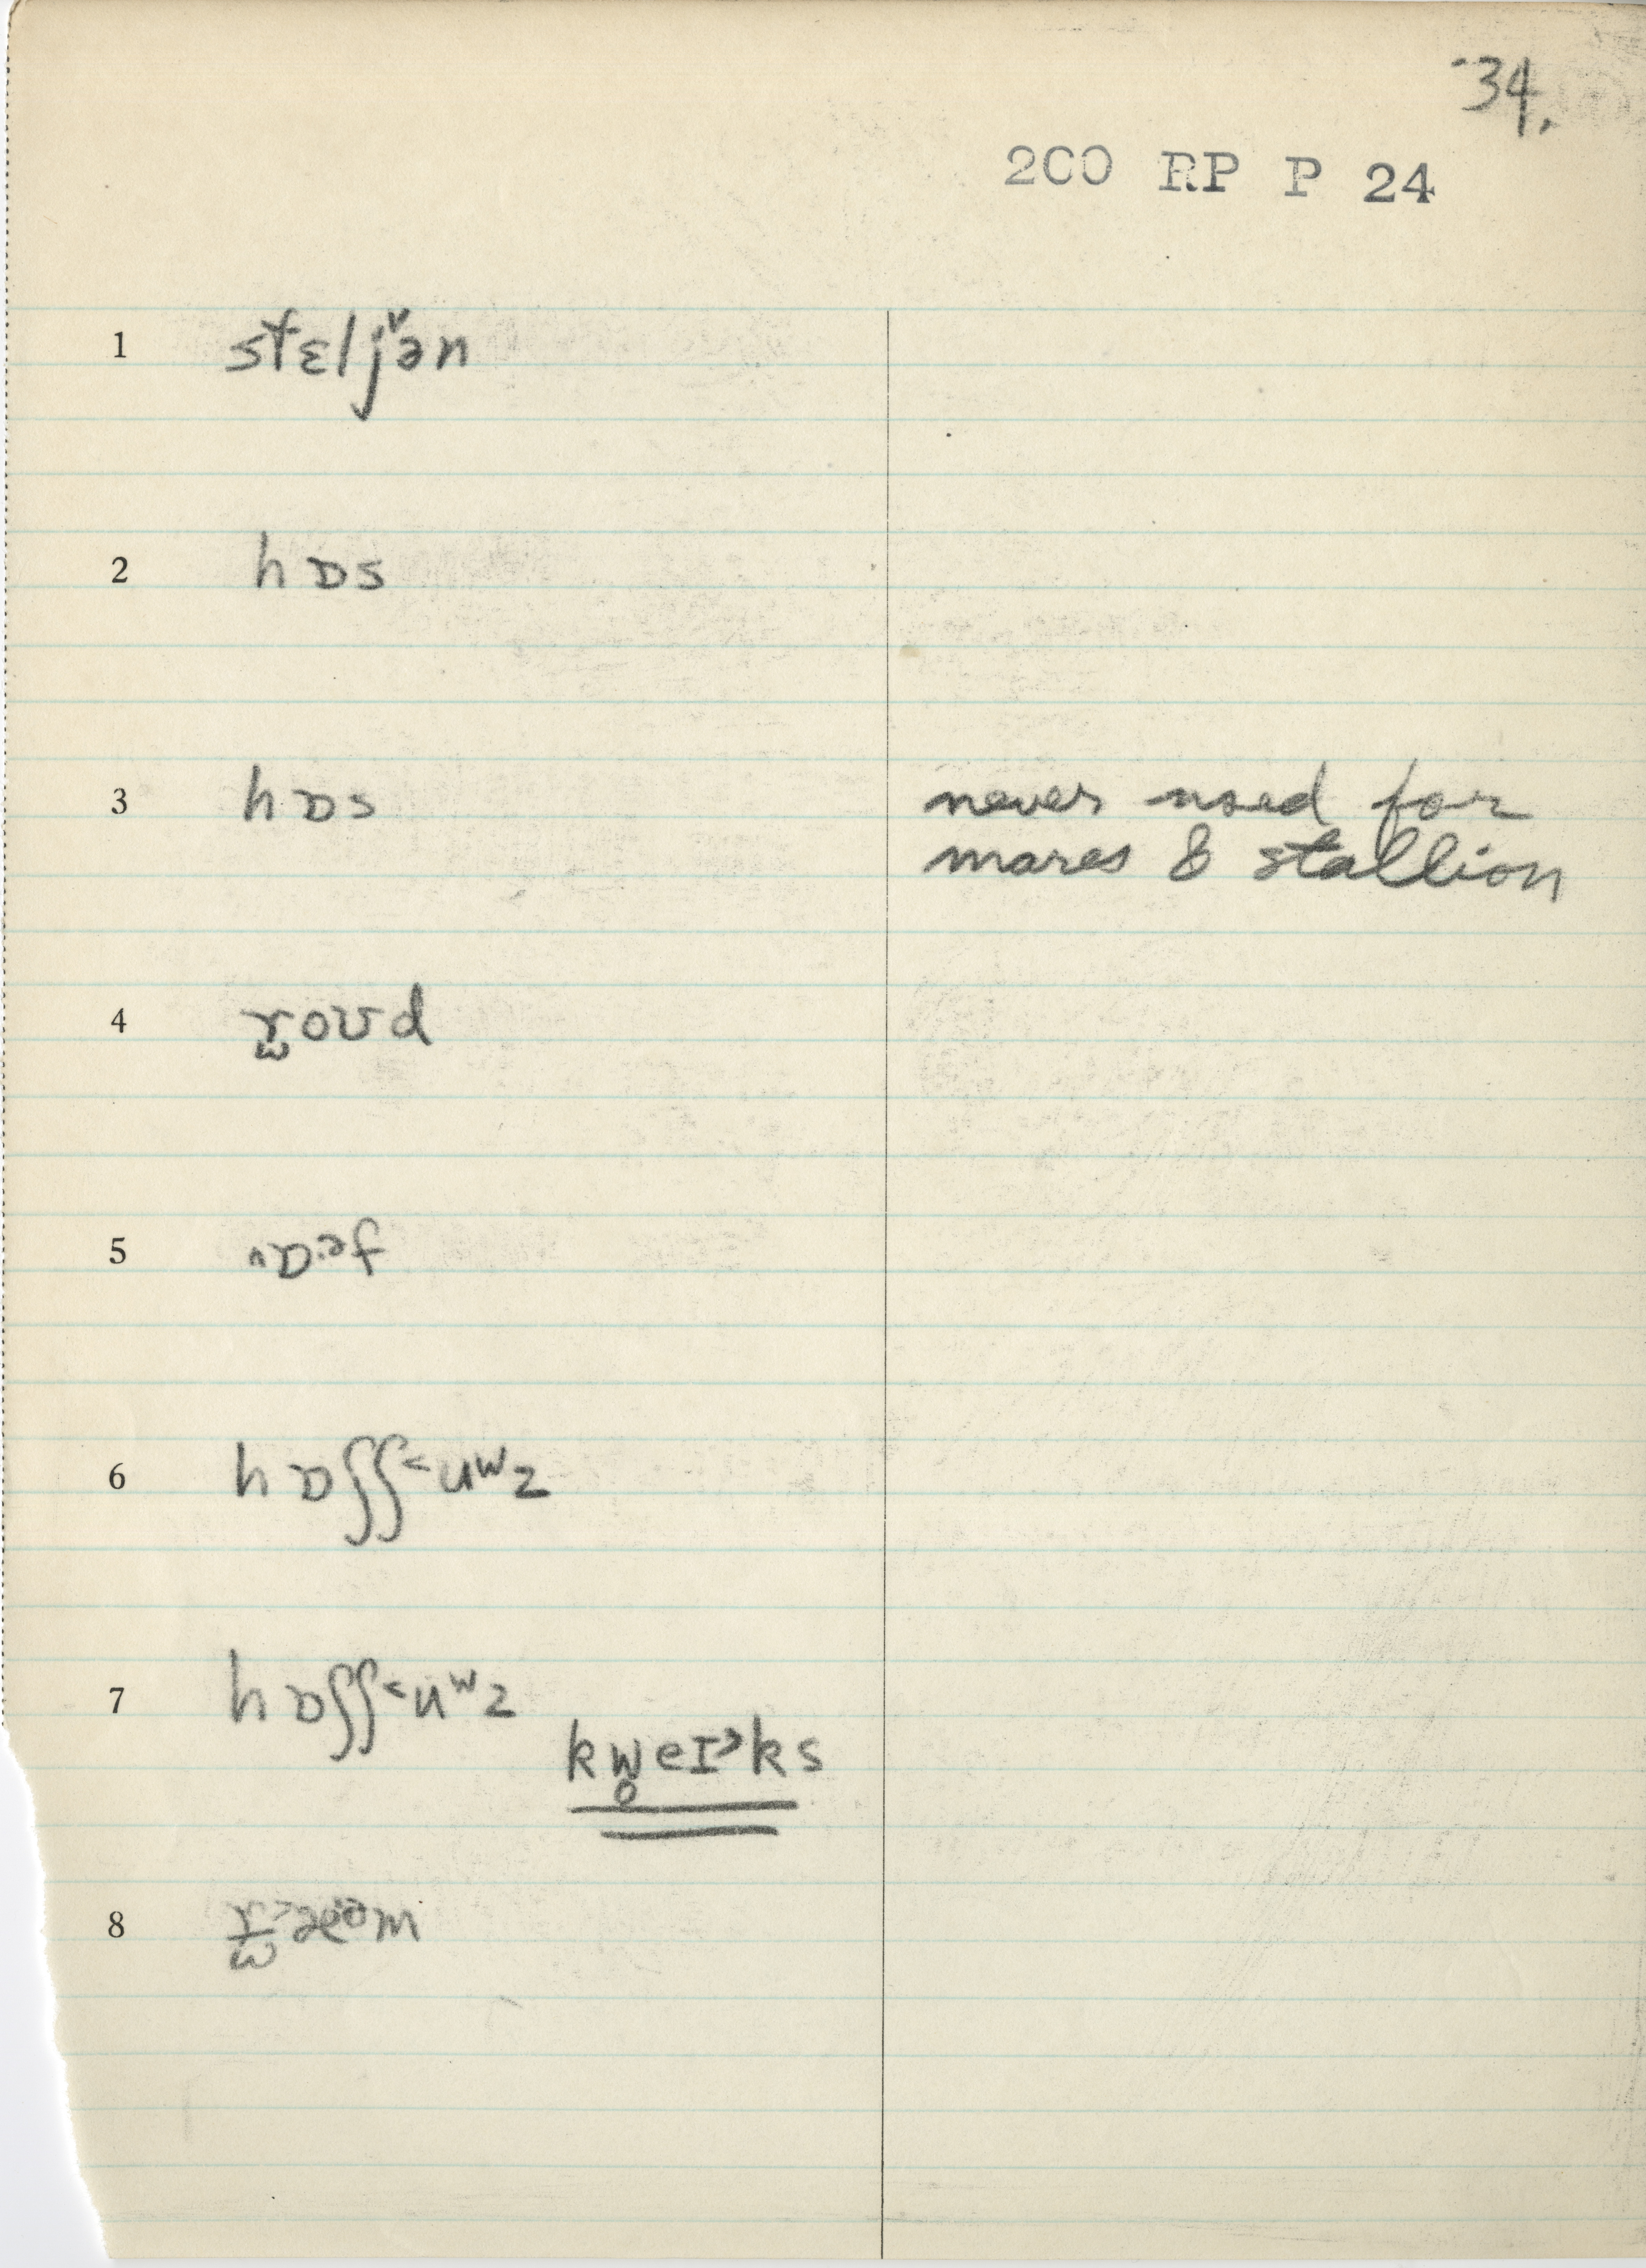 34.
200 RP P 24
1 stɛljə̌n
2 hɒs
3 hɒs never used for
mares & stallion
4 r̫oʊd
5
6 hɒʃʃ˂uʷz
7 hɒʃʃ˂uʷz
kw̥eɪ˃ks
8